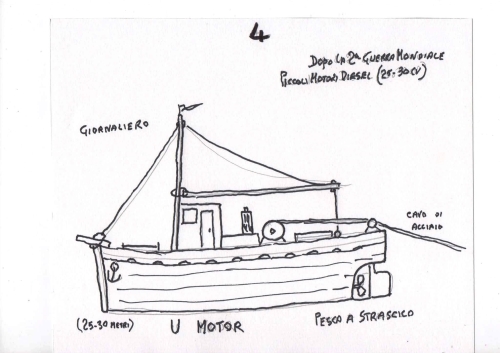 4
DOPO LA 2ª GUERRA MONDIALE
PICCOLI MOTORI DIESEL (25-30 CV)
GIORNALIERO
CAVO DI
ACCIAIO
(25-30 METRI)
U MOTOR
PESCA A STRASCICO